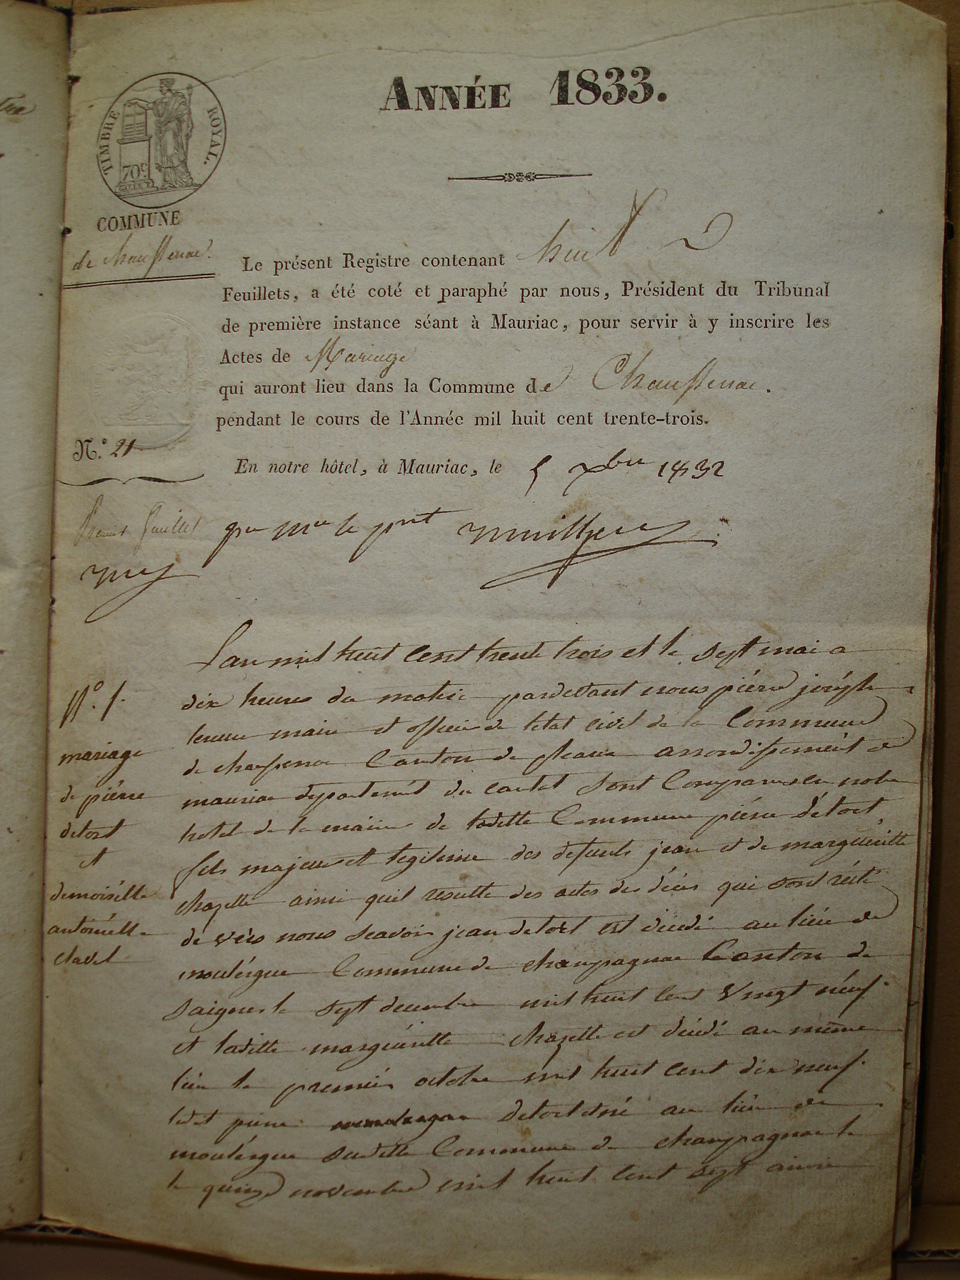 ANNÉE 1833.
TIMBRE ROYAL.
70c
COMMUNE
de Chaussenac
Le présent Registre contenant huit
Feuillets, a été coté et paraphé par nous, Président du Tribunal
de première instance séant à Mauriac, pour servir à y inscrire les
Actes de Mariage
qui auront lieu dans la Commune de Chaussenac.
pendant le cours de l'Année mil huit cent trente-trois.
N.° 21
En notre hôtel, à Mauriac, le 5 xbre 1832
feuillet
N° 1.
mariage
de piérre
detort
et
demoiselle
antoinette
clavel
Lan mil huit cent trente trois et le sept mai a
dix heures du matin pardevant nous piérre joseph
maire et officier de letat civil de la Commune
de chaussenac Canton de pleaux arrondissement de
mauriac département du cantal sont Comparus en notre
hotel de la mairie de ladite Commune piérre détort
fils majeur et legitime des defunts jean et de marguéritte
chazelle ainsi quil resulte des actes des décès qui sont
de vers nous scavoir jean detort est décédé au lieu de
moulérgue Commune de champagnac Canton de
saignes le sept decembre mil huit cent vingt néuf
et ladite marguéritte chazelle est décédé au même
lieu le premiér octobre mil huit cent dix neuf
ledit piérre detort né au lieu de
moulérgue susditte Commune de champagnac le
le quinze novembre mil huit cent sept ainsi